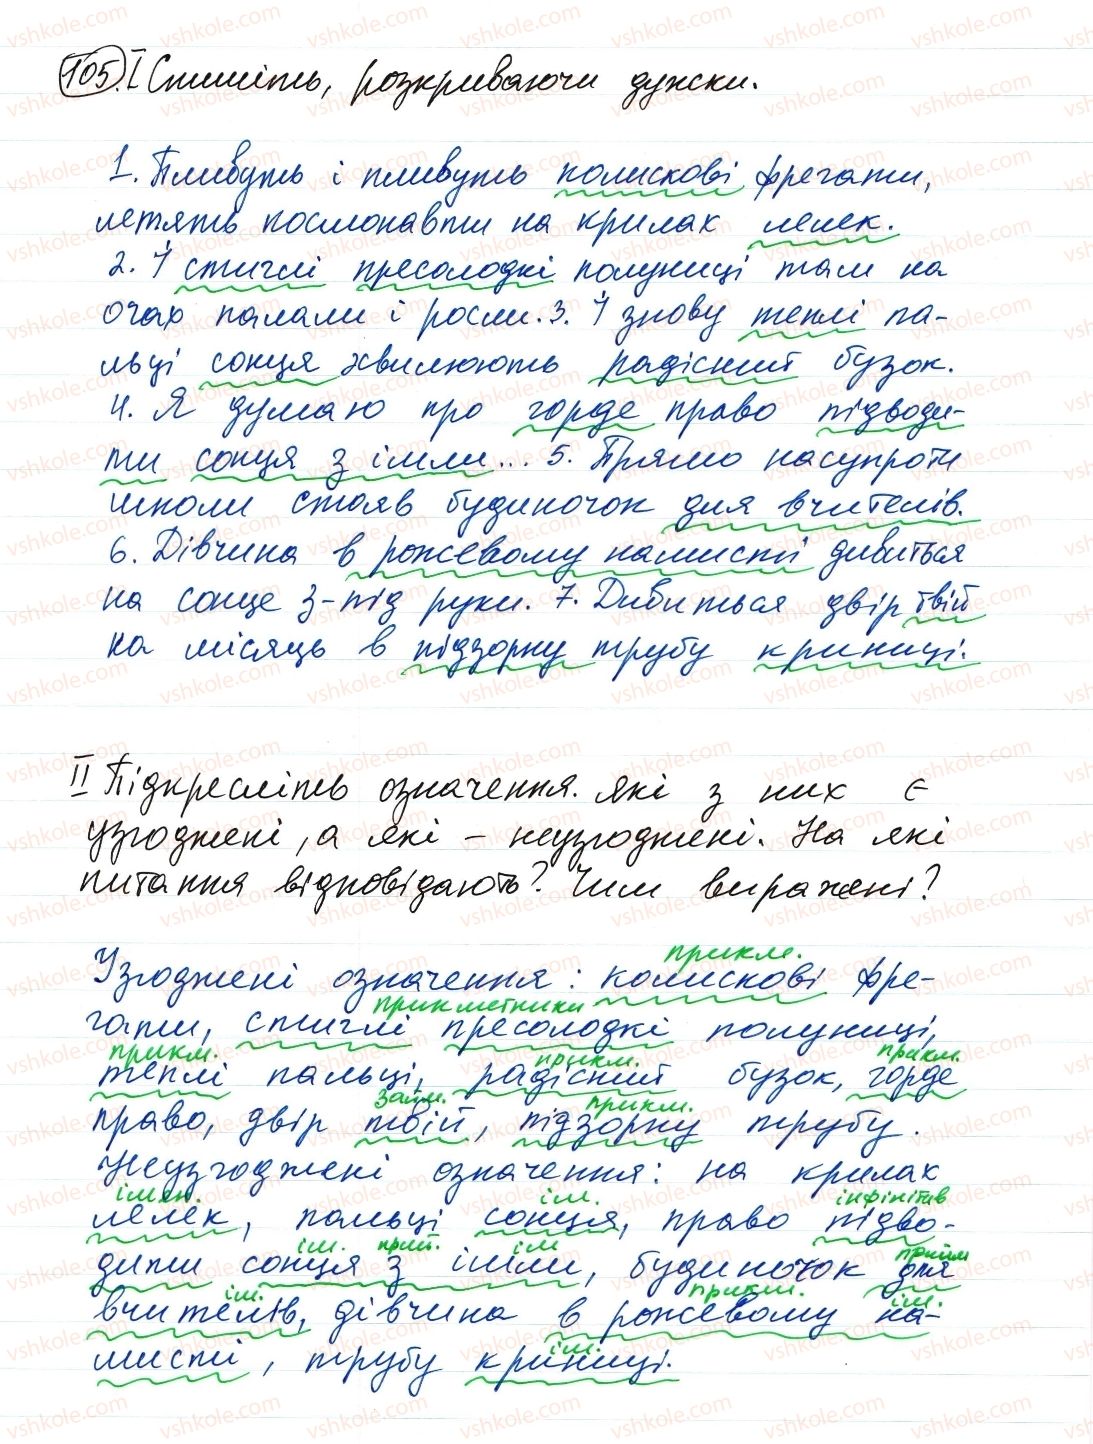 105. I Спишіть, розкриваючи дужки.
1. Пливуть і пливуть колискові фрегати,
летять космонавти на крилах лелек.
2. І стиглі пресолодкі полуниці там на
очах палали і росли. 3. І знову теплі па-
льці сонця хвилюють радісний бузок.
4. Я думаю про горде право підводи-
ти сонця з імли... 5. Прямо насупроти
школи стояв будиночок для вчителів.
6. Дівчина в рожевому намисті дивиться
на сонце з-під руки. 7. Дивиться двір твій
на місяць в підзорну трубу криниці.
II Підкресліть означення. Які з них є
узгоджені, а які – неузгоджені. На які
питання відповідають? Чим виражені?
прикм.
Узгоджені означення: колискові фре-
прикметники
гати, стиглі пресолодкі полуниці,
прикм. прикм. прикм.
теплі пальці, радісний бузок, горде
займ. прикм.
право, двір твій, підзорну трубу.
Неузгоджені означення: на крилах
імен. ім. інфінітив
лелек, пальці сонця, право підво-
ім. прий. ім прийм
дити сонця з імли, будиночок для
ім. прикм. ім.
вчителів, дівчина в рожевому на-
ім.
мисті, трубу криниці.